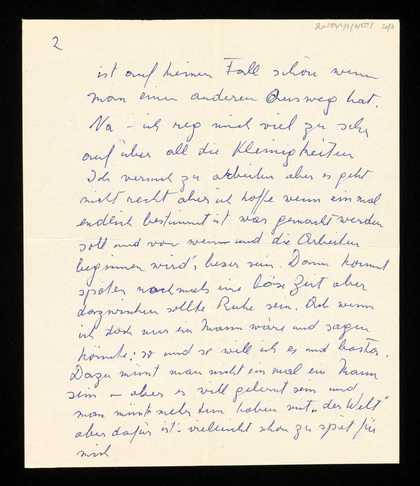 2
ist auf keinen Fall schön wenn
man einen anderen Ausweg hat.
Na – ich reg mich viel zu sehr
auf über all die Kleinigkeiten
Ich versuch zu arbeiten aber es geht
nicht recht aber ich hoffe wenn einmal
endlich bestimmt ist was gemacht werden
soll und von wem und die Arbeiten
beginnen wird's besser sein. Dann kommt
später nochmals eine böse Zeit aber
dazwischen sollte Ruhe sein. Ach wenn
ich doch nur ein Mann wäre und sagen
könnte: so und so will ich es und basta.
Dazu müsst man nicht einmal ein Mann
sein – aber es will gelernt sein und
man müsst mehr tun haben mit "der Welt"
aber dafür ist vielleicht schon zu spät für
mich